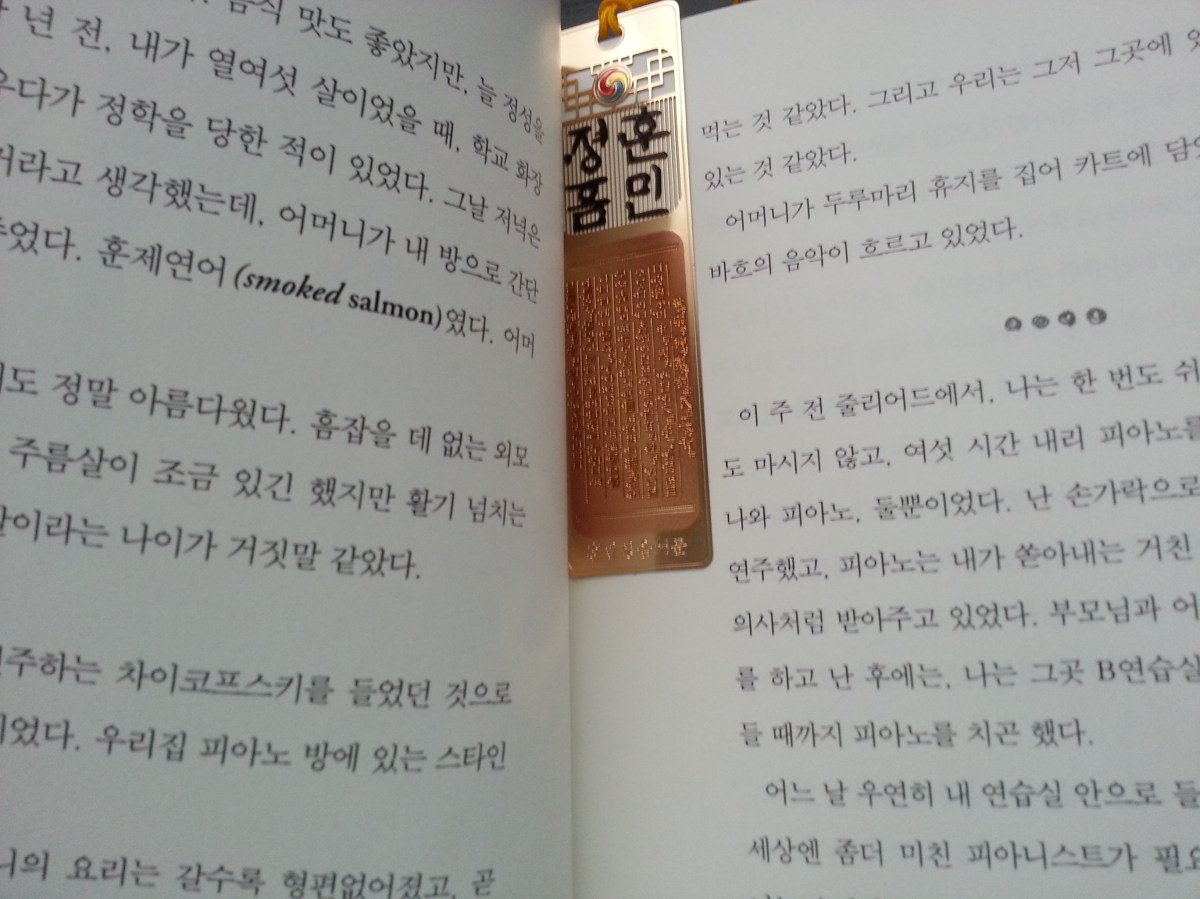 음식 맛도 좋았지만, 늘 정성을
년 전, 내가 열여섯 살이었을 때, 학교 화장
우다가 정학을 당한 적이 있었다. 그날 저녁은
거라고 생각했는데, 어머니가 내 방으로 간단
었다. 훈제연어(smoked salmon)였다. 어머
도 정말 아름다웠다. 흠잡을 데 없는 외모
주름살이 조금 있긴 했지만 활기 넘치는
이라는 나이가 거짓말 같았다.
주하는 차이코프스키를 들었던 것으로
이었다. 우리집 피아노 방에 있는 스타인
니의 요리는 갈수록 형편없어졌고, 곧
훈민
정음
먹는 것 같았다. 그리고 우리는 그저 그곳에
있는 것 같았다.
어머니가 두루마리 휴지를 집어 카트에 담
바흐의 음악이 흐르고 있었다.
이 주 전 줄리어드에서, 나는 한 번도 쉬
도 마시지 않고, 여섯 시간 내리 피아노를
나와 피아노, 둘뿐이었다. 난 손가락으로
연주했고, 피아노는 내가 쏟아내는 거친
의사처럼 받아주고 있었다. 부모님과 어
를 하고 난 후에는, 나는 그곳 B연습실
들 때까지 피아노를 치곤 했다.
어느 날 우연히 내 연습실 안으로 들
세상엔 좀더 미친 피아니스트가 필요